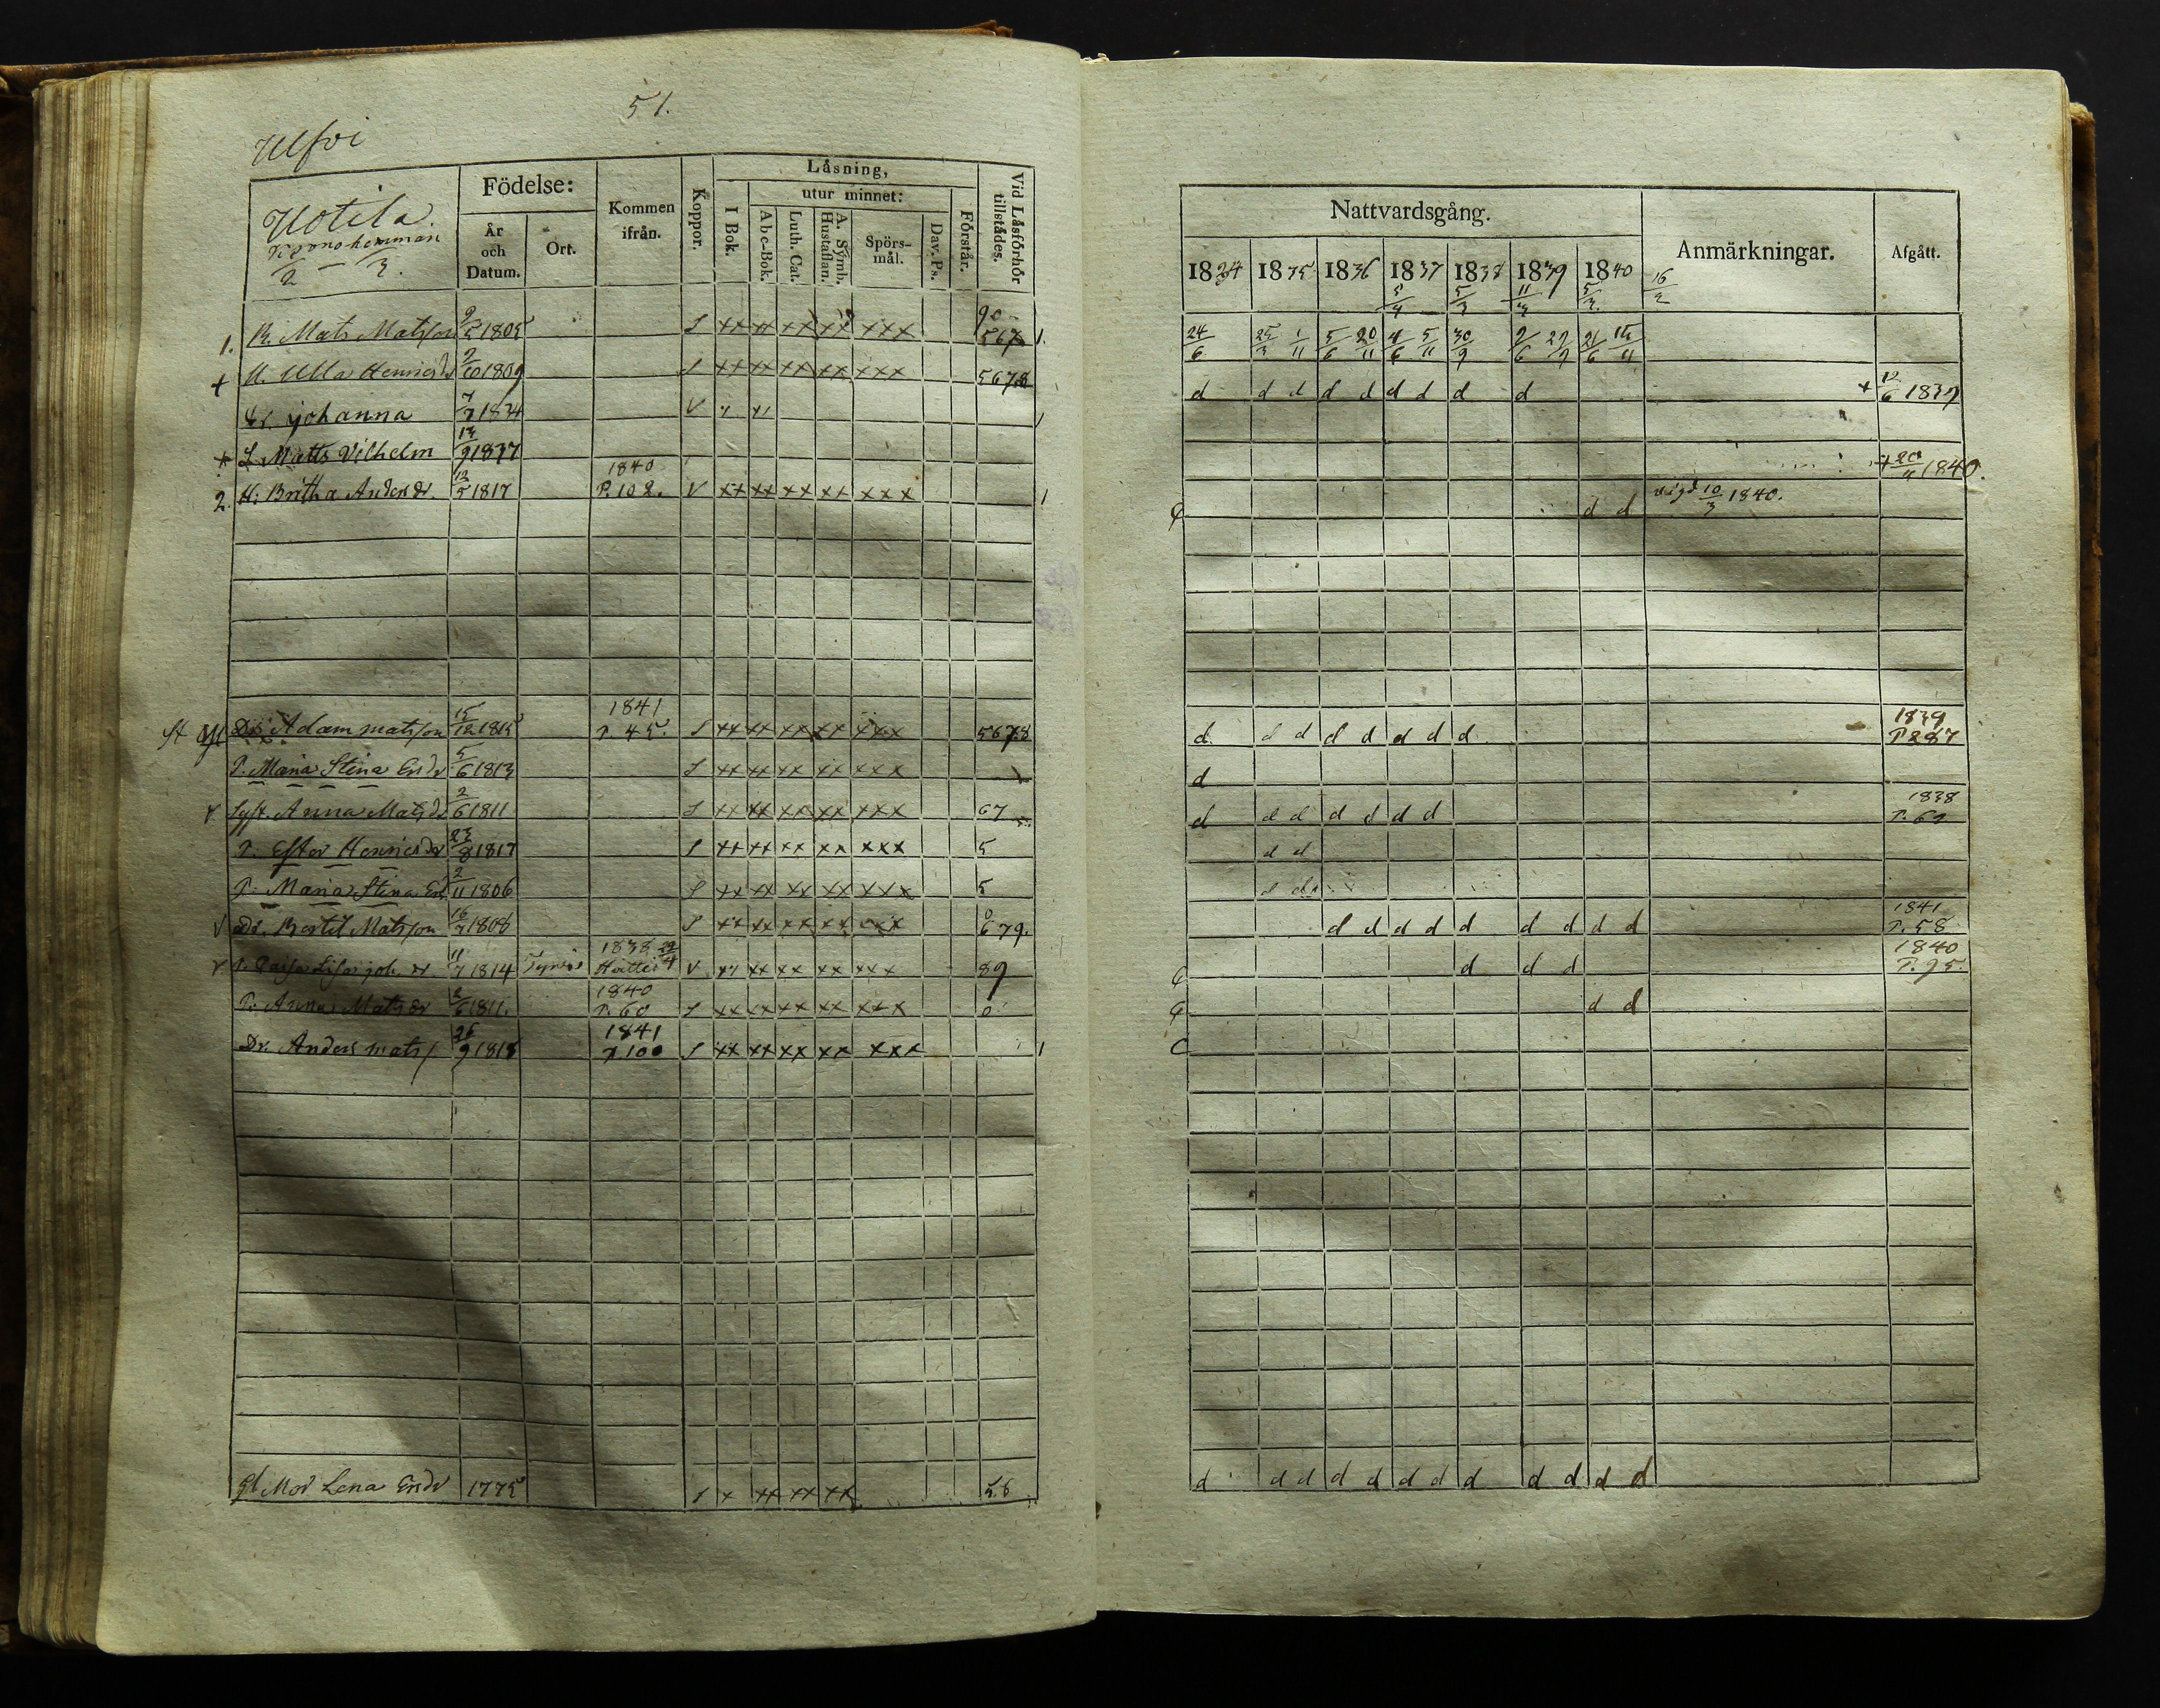 51.
Ulfvi
Uotila
Kronohemman
2 — 3.
Födelse:
År och Datum.
Ort.
Kommen ifrån.
Koppor.
Läsning,
I Bok.
utur minnet:
Abc-Bok.
Luth. Cat.
A. Symb. Hustaflan.
Spörs-mål.
Dav. Ps.
Förstår.
Vid Läsförhör tillstädes.
1. B. Mats Matsson 9/5 1805 S xx xx xx xx xxx 567 1.
+ H. Ulla Henricsdr 2/10 1809 S xx xx xx xx xxx 5678
dr. Johanna 7/7 1834 V 1
+ S. Matts Vilhelm 13/9 1837
2. H: Britha Andersdr. 12/5 1817 1840 P. 102. V xx xx xx xx xxx 1
Dr. Adam Matsson 15/12 1815 1841 P. 45. S xx xx xx xx xxx 5678
P. Maria Stina Ersdr 5/6 1813 S xx xx xx xx xxx
Syst. Anna Matsdr 2/6 1811 S xx xx xx xx xxx 67
P. Ester Henricsdr 23/8 1817 S xx xx xx xx xxx 5
P. Maria Stina Ers 2/11 1806 S xx xx xx xx xxx 5
Bertil Matsson 16/7 1808 S xx xx xx xx xxx 679.
P. Caisa Lisa Joh. dr 11/7 1814 1838 V xx xx xx xx xxx 89
P. Anna Matsdr 2/6 1811. 1840 P. 60 S xx xx xx xx xxx 0
Dr. Anders Mats 1841 P. 100 S xx xx xx xx xxx 1
Gl Mor Lena Ersdr 1775 S x xx xx xx 56
Nattvardsgång.
Anmärkningar.
Afgått.
1834 1835 1836 1837 1838 1839 1840
5/4 5/3 11/3 5/3 16/2
24/6 25/3 1/11 5/6 20/11 4/6 5/11 30/9 2/6 29/9 21/6 15/11
d d d d d d d d d + 12/6 1839
+ 20/4 1840.
d d vigd 10/3 1840.
d d d d d d d d 1839 P 287
d
d d d d d d d 1838
d d
d d
d d d d d d d d d 1841 P. 58
d d d 1840 P. 95.
d d
d d d d d d d d d d d d